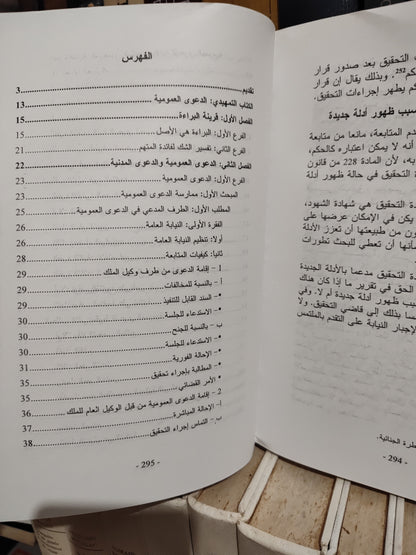 التحقيق بعد صدور قرار
حكم252. وبذلك يقال إن قرار
كم يطهر إجراءات التحقيق.
سبب ظهور أدلة جديدة
دم المتابعة، مانعا من متابعة
أنه لا يمكن اعتباره كالحكم،
به، لأن المادة 228 من قانون
التحقيق في حالة ظهور أدلة
دة التحقيق هي شهادة الشهود،
يكن في الإمكان عرضها على
ون من طبيعتها أن تعزز الأدلة
أنها أن تعطي للبحث تطورات
التحقيق مدعما بالأدلة الجديدة
الحق في تقرير ما إذا كان هناك
بب ظهور أدلة جديدة أم لا. وفي
سا بذلك إلى قاضي التحقيق. ولا
لإجبار النيابة على التقدم بالملتمس
طرة الجنائية.
- 294 -
الفهرس
تقديم 3
الكتاب التمهيدي: الدعوى العمومية 13
الفصل الأول: قرينة البراءة 15
الفرع الأول: البراءة هي الأصل 15
الفرع الثاني: تفسير الشك لفائدة المتهم 21
الفصل الثاني: الدعوى العمومية والدعوى المدنية 22
الفرع الأول: الدعوى العمومية 22
المبحث الأول: ممارسة الدعوى العمومية 23
المطلب الأول: الطرف المدعي في الدعوى العمومية 23
الفقرة الأولى: النيابة العامة 26
أولا: تنظيم النيابة العامة 26
ثانيا: كيفيات المتابعة 28
1 - إقامة الدعوى من طرف وكيل الملك 30
أ - بالنسبة للمخالفات 30
• السند القابل للتنفيذ 30
• الاستدعاء للجلسة 30
ب - بالنسبة للجنح 31
• الاستدعاء للجلسة 31
• الإحالة الفورية 31
• المطالبة بإجراء تحقيق 35
• الأمر القضائي 35
2 - إقامة الدعوى العمومية من قبل الوكيل العام للملك 36
أ - الإحالة المباشرة 37
ب - التماس إجراء التحقيق 38
- 295 -